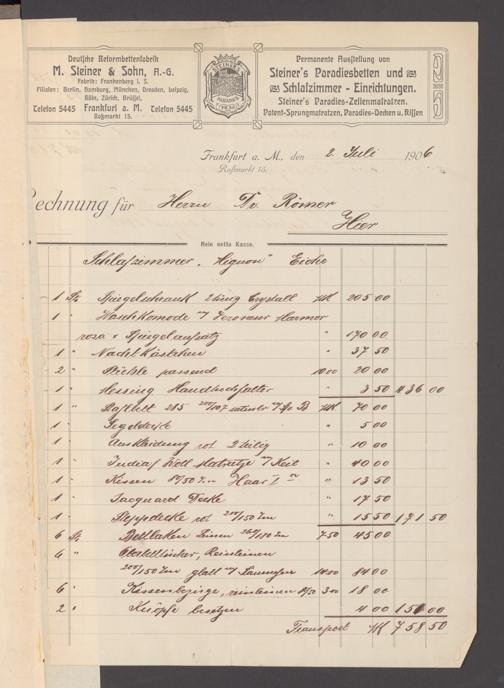 Deutsche Reformbettenfabrik
M. Steiner & Sohn, A.-G.
Fabrik: Frankenberg i. S.
Filialen: Berlin, Hamburg, München, Dresden, Leipzig,
Köln, Zürich, Brüssel,
Telefon 5445 Frankfurt a. M. Telefon 5445
Roßmarkt 15.
STEINER
PARADIES
Permanente Ausstellung von
Steiner's Paradiesbetten und
Schlafzimmer - Einrichtungen.
Steiner's Paradies-Zellenmatratzen.
Patent-Sprungmatratzen, Paradies-Decken u. Kissen
Frankfurt a. M., den 2. Juli 1906
Roßmarkt 15.
Rechnung für Herrn Dr. Römer
Hier
Rein netto Kasse.
Schlafzimmer "Mignon" Eiche
1 St Spiegelschrank 2 türig Crystall M 205 00
1 " Waschkomode m/ Marmor
rosa u Spiegelaufsatz " 170 00
1 " Nachtkästchen " 37 50
2 " Stühle passend 10 00 20 00
1 " Messing Handtuchhalter " 3 50 436 00
1 " M 70 00
1 " " 5 00
1 " Auskleidung rot 2 teilig " 10 00
1 " India/ Woll Matratze m/ Keil " 40 00
1 " Kissen Haar I " 13 50
1 " Jacquard Decke " 17 50
1 " Steppdecke rot 200/150 cm " 15 50 171 50
6 St Bettlaken Leinen 7 50 45 00
6 " Oberbettücher, Reinleinen
200/150 cm glatt m/ 14 00 84 00
6 " Kissenbezüge, reinleinen 3 00 18 00
2 " Knöpfe besetzen 4 00 151 00
Transport M 758 50